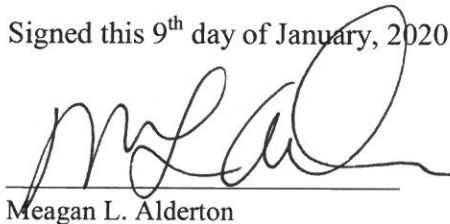 Signed this 9th day of January, 2020
Meagan L. Alderton